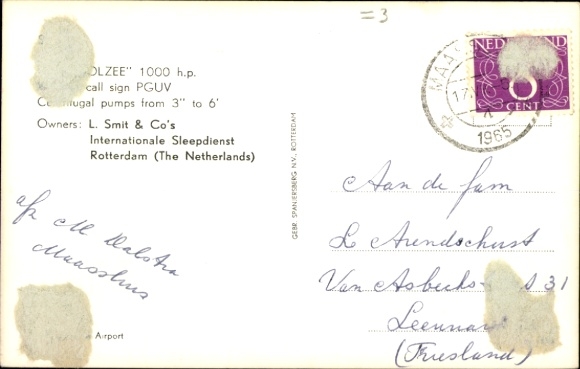 =3
OLZEE" 1000 h.p.
call sign PGUV
Centrifugal pumps from 3" to 6'
Owners: L. Smit & Co's
Internationale Sleepdienst
Rotterdam (The Netherlands)
Airport
GEBR. SPANJERSBERG N.V., ROTTERDAM
afz M Dalstra
Maassluis
NEDERLAND
6
CENT
MAAS
17
1965
Aan de fam
L Arendshorst
Van Asbeck S 31
Leeuwar
(Friesland)